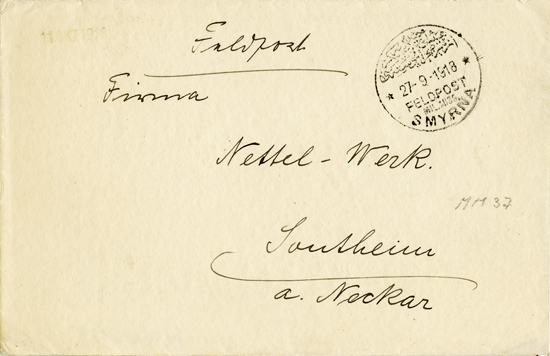 Feldpost
Firma
27-9-1918
FELDPOST
MIL. MISS.
SMYRNA
Nettel-Werk.
MM 37
Sontheim
a. Neckar